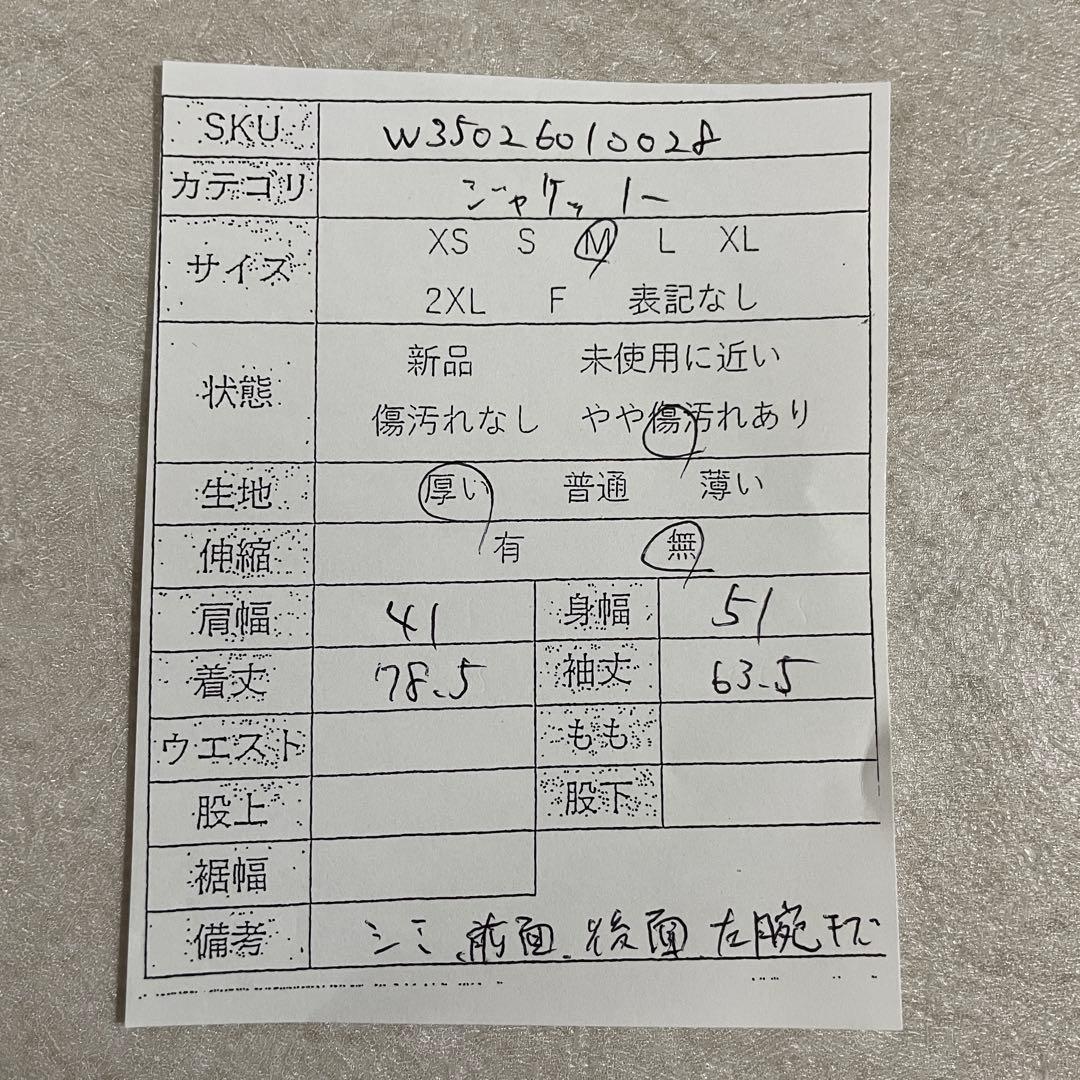 SKU W35026010028
カテゴリ ジャケット
サイズ XS S M L XL
2XL F 表記なし
状態 新品 未使用に近い
傷汚れなし やや傷汚れあり
生地 厚い 普通 薄い
伸縮 有 無
肩幅 41 身幅 51
着丈 78.5 袖丈 63.5
ウエスト もも
股上 股下
裾幅
備考 シミ 前面 後面 左腕